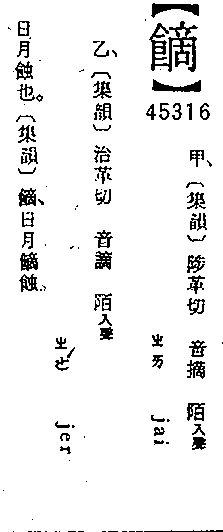 【⿰飠啇】
45316
甲、〔集韻〕陟革切 音摘 陌入聲
ㄓㄞ jai
乙、〔集韻〕治革切 音謫 陌入聲
ㄓㄜˊ jer
日月蝕也。〔集韻〕⿰飠啇、日月⿰飠啇蝕。